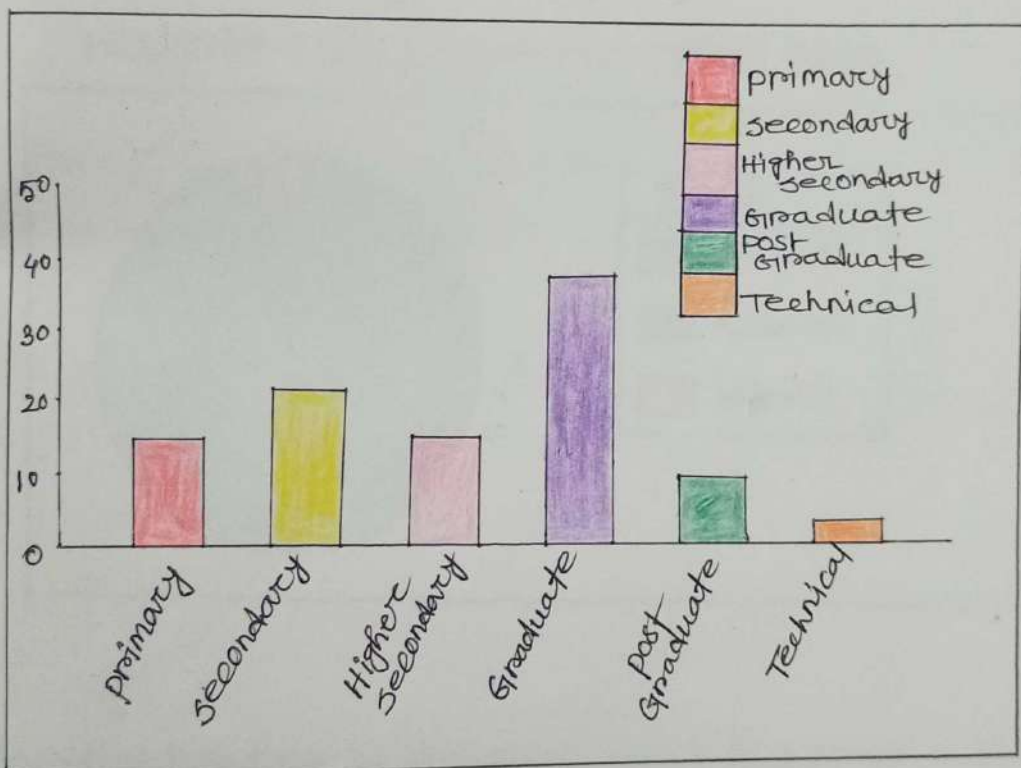 primary
secondary
Higher
secondary
Graduate
post
Graduate
Technical
50
40
30
20
10
0
primary
secondary
Higher
secondary
Graduate
post
Graduate
Technical